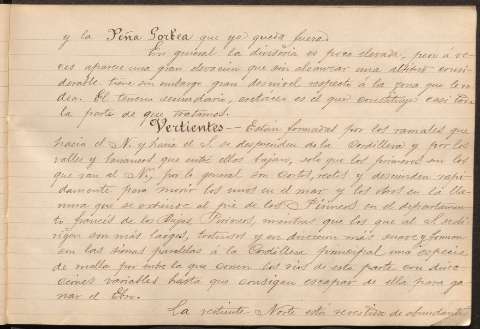 y la Peña Gorbea que ya queda fuera.
En general la divisoria es poco elevada, pero á ve-
ces aparece una gran elevacion que sin alcanzar una altitud consi-
derable tiene sin embargo gran desnivel respecto á la zona que le ro-
dea. El terreno secundario, cretáceo es el que constituye casi toda
la parte de que tratamos.
Vertientes — Están formadas por los ramales que
hacia el N. y hacia el S. se desprenden de la Cordillera y por los
valles y barrancos que entre ellos bajan, solo que los primeros en los
que van al N. por lo general son cortos, rectos y descienden rapi-
damente para morir los unos en el mar y los otros en la lla-
nura que se extiende al pie de los Pirineos en el departamen-
to francés de los Bajos Pirineos, mientras que los que al S. se di-
rigen son mas largos, tortuosos y en direccion mas suave y forman
con las sierras paralelas á la Cordillera principal una especie
de malla por entre la que corren los rios de esta parte con direc-
ciones variables hasta que consiguen escapar de ella para ga-
nar el Ebro.
La vertiente Norte está revestida de abundante